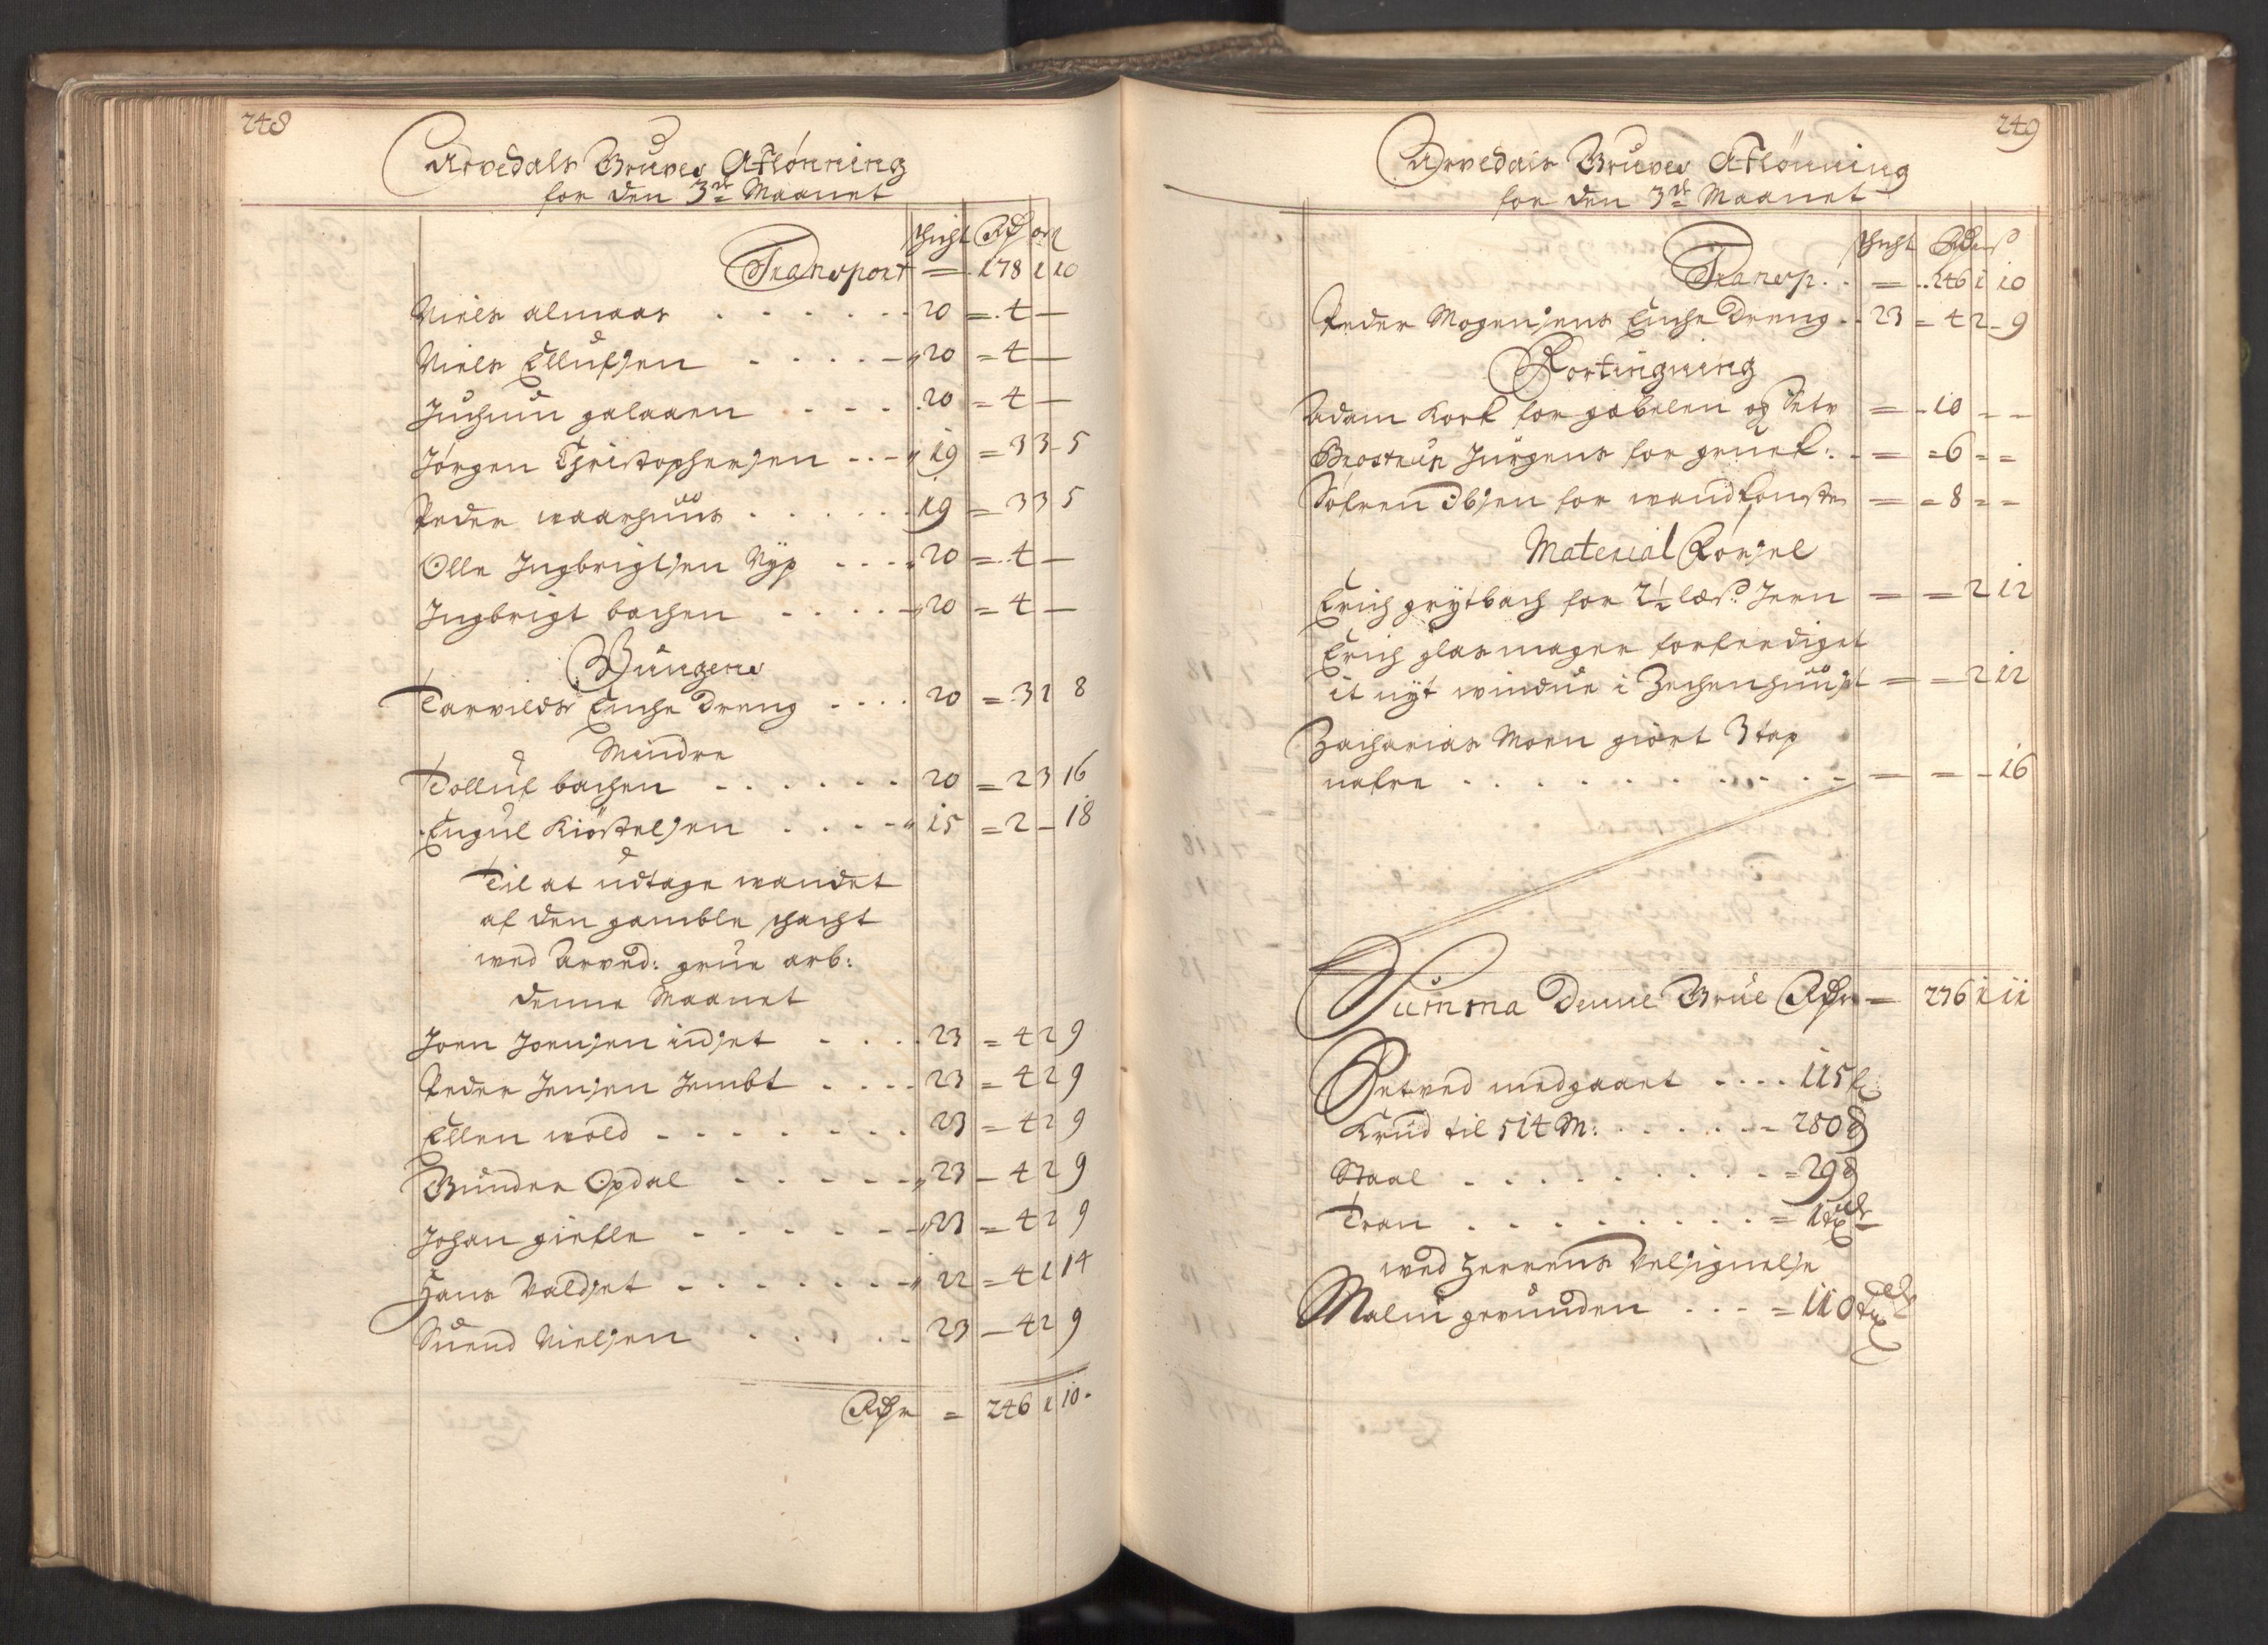 248
Arvedals Gruves Afflønning
for den 3de Maanet
schicht Rdr ort ß
Transport = 178 1 10
Niels almaas 20 = 4 —
Niels Ellufsen 20 = 4 —
Juchum galaaen 20 = 4 —
Jørgen Christophersen 19 = 3 3 5
Peder waarhuus 19 = 3 3 5
Olle Ingbrigtsen Nyp 20 = 4 —
Ingbrigt bachen 20 = 4 —
Gungere
Tarvilds Enche dreng 20 = 3 1 8
Mindre
Tolluf bachen 20 = 2 3 16
Engul Kiøstelsen 15 = 2 — 18
Til at udtage wandet
af den gamble schacht
wed Arved: grue arb:
denne Maanet
Joen Joensen indset 23 = 4 2 9
Peder Jensen Jembt 23 = 4 2 9
Ellen wold 23 = 4 2 9
Gunder Opdal 23 — 4 2 9
Johan giefle 23 = 4 2 9
Hans Valdset 22 = 4 1 14
Suend Nielsen 23 — 4 2 9
Rdr = 246 1 10
249
Arvedals Gruves Afflønning
for den 3de Maanet
schicht Rdr ß
Transp. = 246 1 10
Peder Mogensens Enche dreng 23 = 4 2 - 9
Fortingning
Adam Kork for gabelen og Setv = 10 - -
Brostrup Jürgens for gruef: = 6 = =
Søfren Ibsen for wandkonsten = 8 = =
Material Kørsel
Erich grytbach for 2½ læs Jern = = 2 12
Erich glasmager forferdiget
it nyt windue i Zechenhuuset = = 2 12
Zacharias Moen giort 3 tap
nafre = = - 16
Summa denne Grue Rdr = 276 1 11
Setved medgaaet 115 f:
Krud til 514 M: 280 ℔
Staal = 29 ℔
Tran = 1 tde
wed Herrens Velsignelse
Malm gevunden = 110 tdr